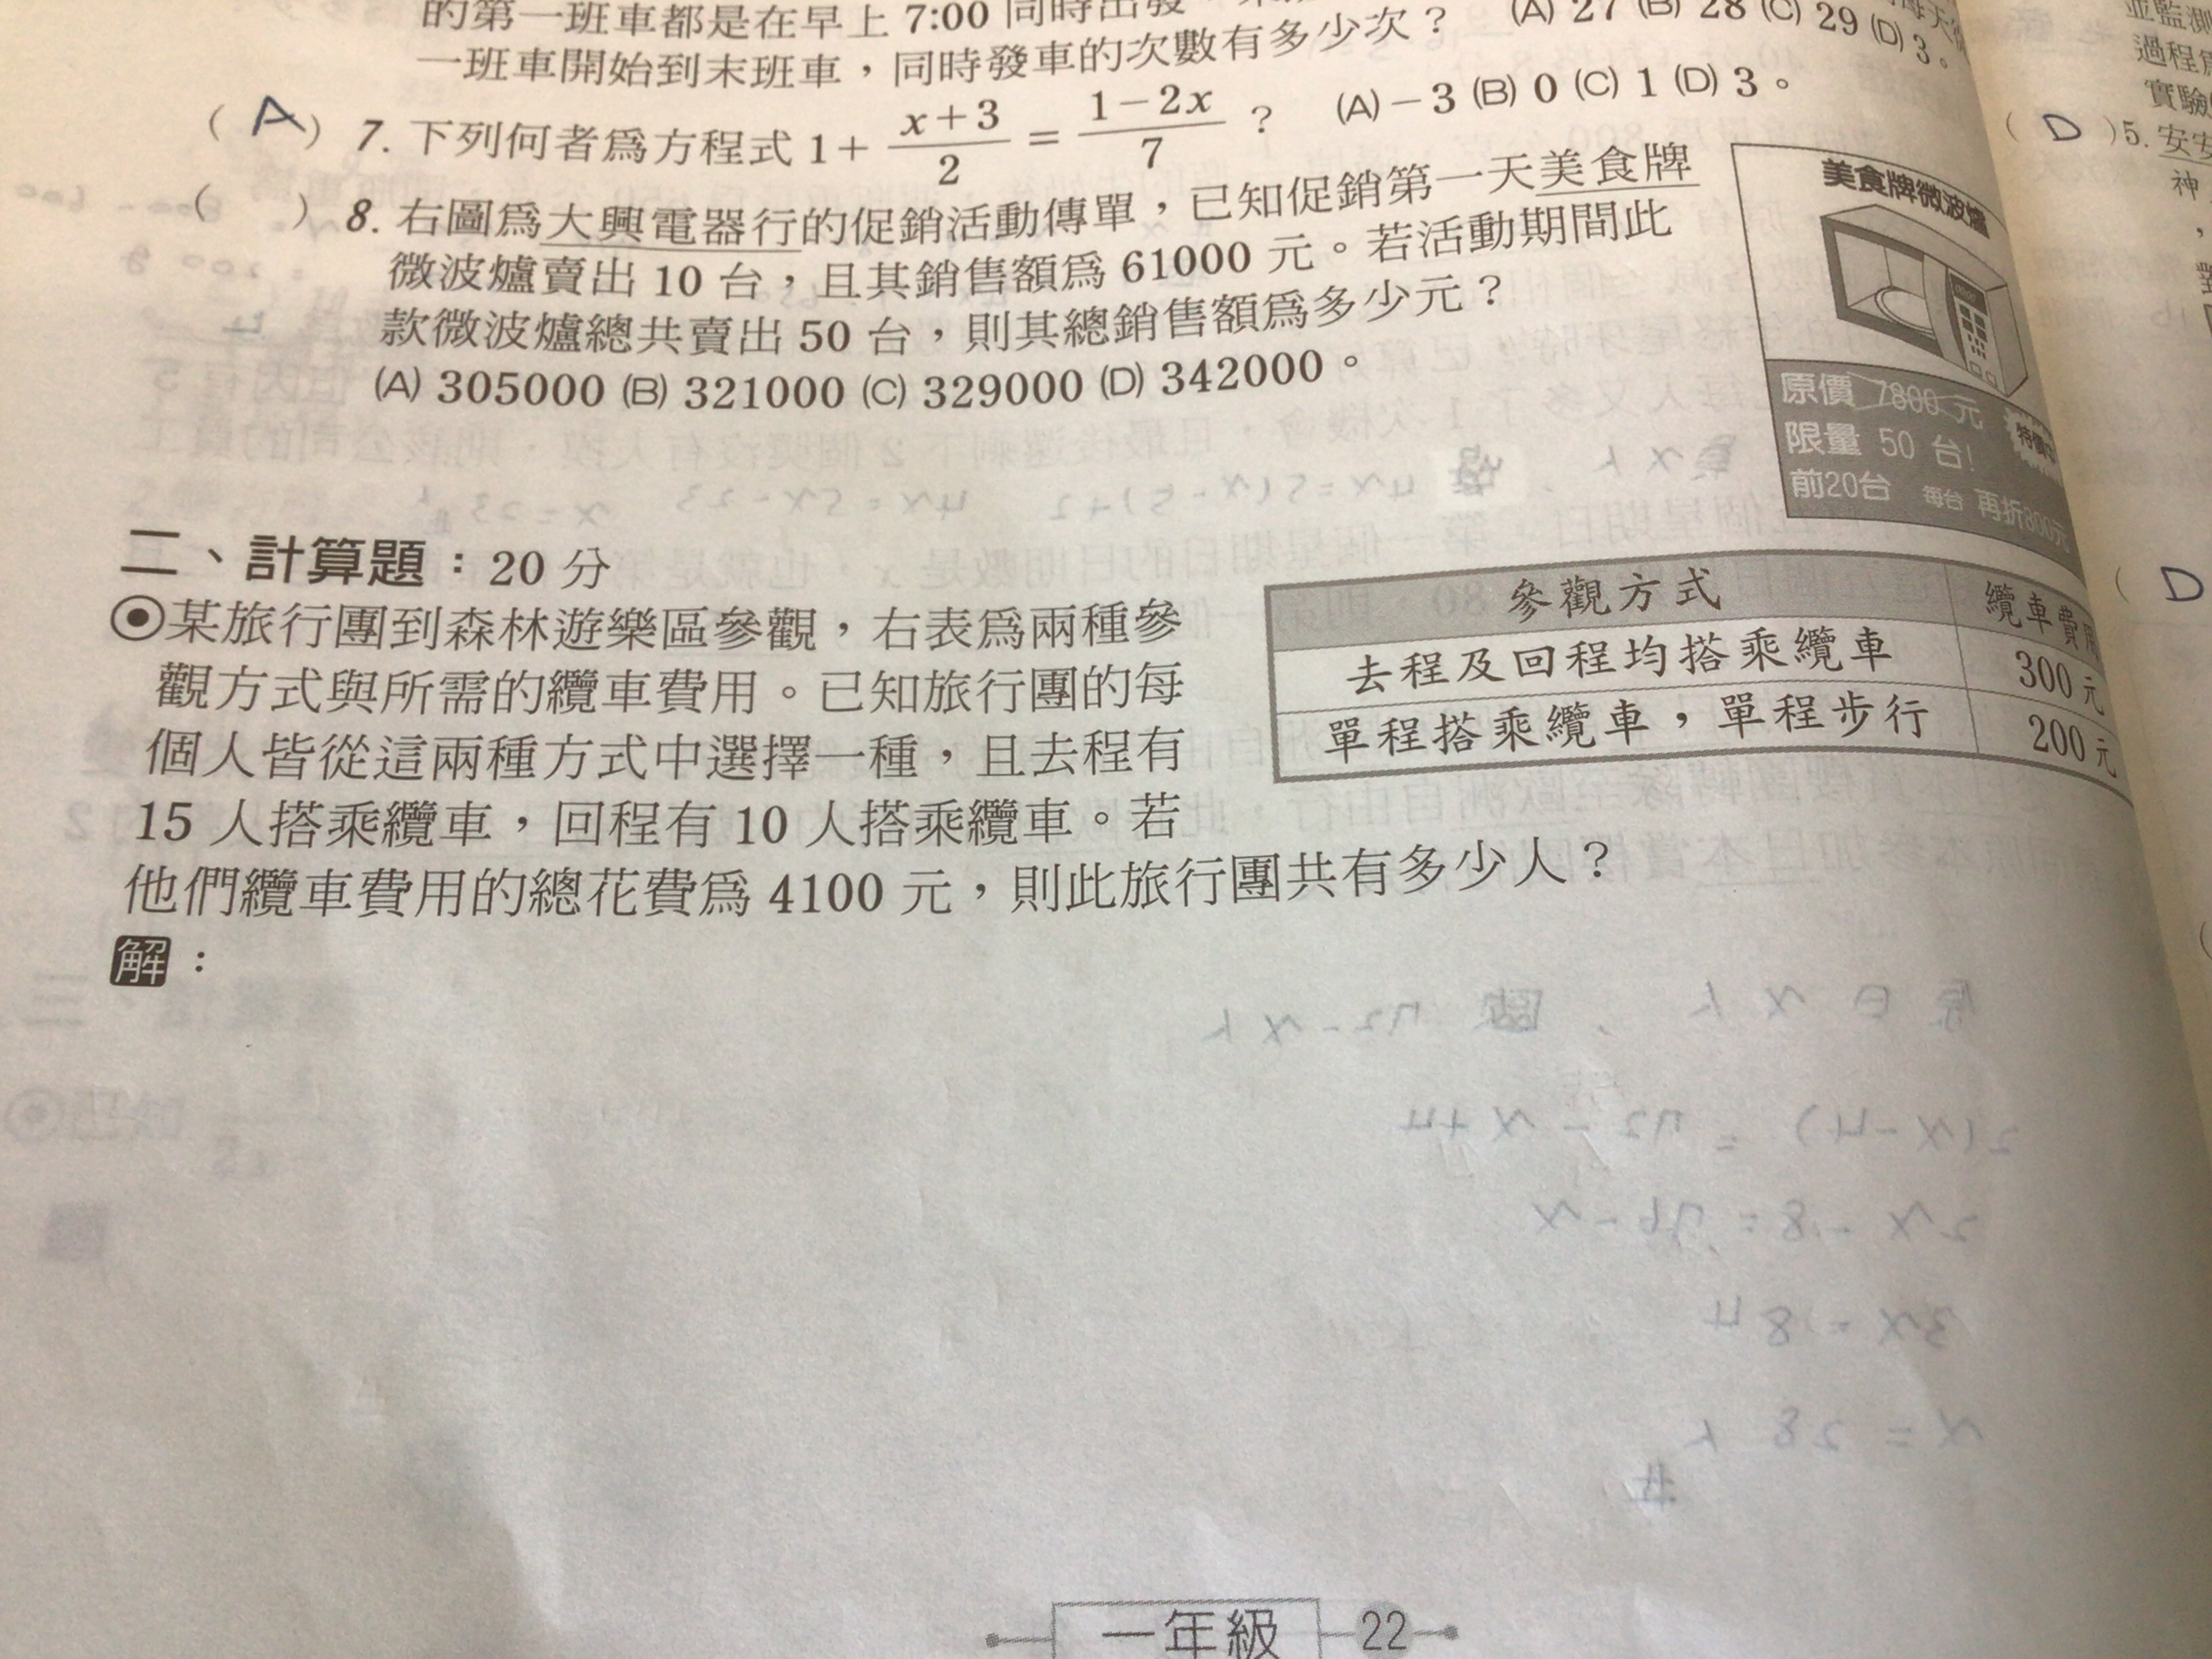 的第一班車都是在早上 7:00 同時出發
一班車開始到末班車，同時發車的次數有多少次？ (A) 27 (B) 28 (C) 29 (D) 3。
( A ) 7. 下列何者為方程式 1+ x+3/2 = 1-2x/7 ？ (A) -3 (B) 0 (C) 1 (D) 3。
( ) 8. 右圖為大興電器行的促銷活動傳單，已知促銷第一天美食牌
微波爐賣出 10 台，且其銷售額為 61000 元。若活動期間此
款微波爐總共賣出 50 台，則其總銷售額為多少元？
(A) 305000 (B) 321000 (C) 329000 (D) 342000。
美食牌微波爐
原價 7800 元
限量 50 台!
前20台 每台 再折800元
二、計算題：20 分
某旅行團到森林遊樂區參觀，右表為兩種參
觀方式與所需的纜車費用。已知旅行團的每
個人皆從這兩種方式中選擇一種，且去程有
15 人搭乘纜車，回程有 10 人搭乘纜車。若
他們纜車費用的總花費為 4100 元，則此旅行團共有多少人？
參觀方式 纜車費用
去程及回程均搭乘纜車 300 元
單程搭乘纜車，單程步行 200 元
解：
一年級 22
並監測
過程
實驗
( D ) 5. 安安
神
( D